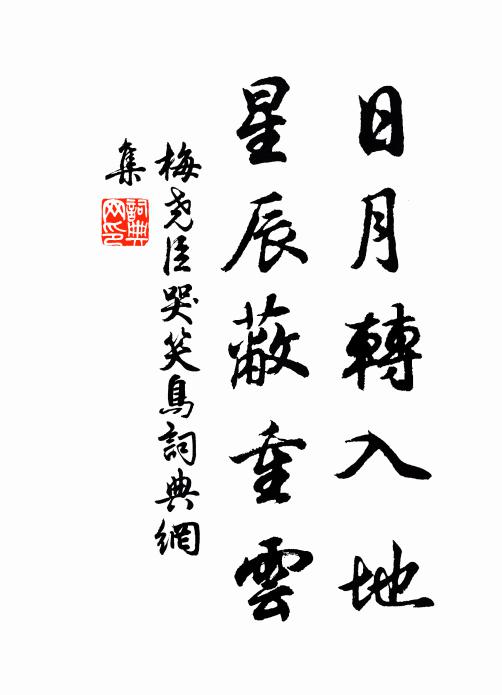 日月轉入地
星辰蔽重雲
梅堯臣哭笑鳥詞典網
集
詞典网印